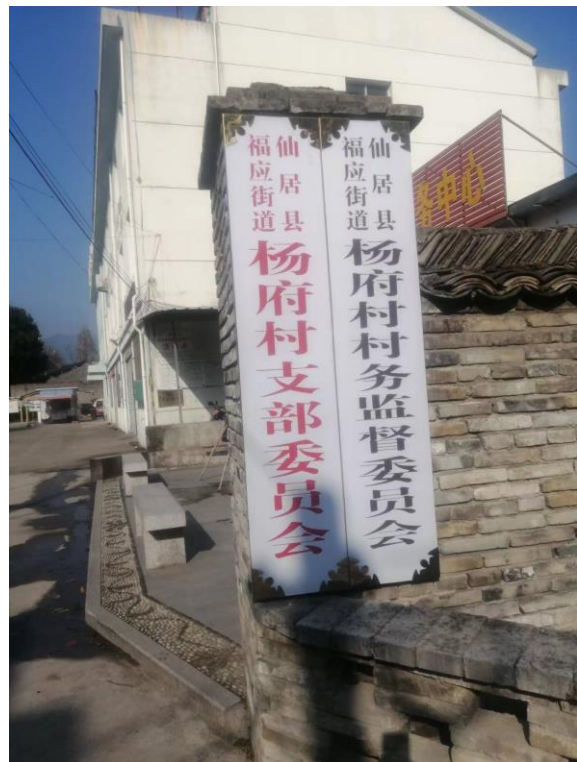 仙居县
福应街道
杨府村支部委员会
仙居县
福应街道
杨府村村务监督委员会
务中心